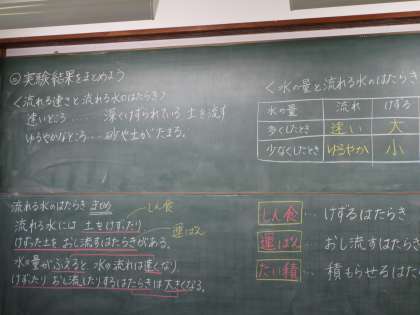 ◎実験結果をまとめよう
＜流れる速さと流れる水のはたらき＞
速いところ……深くけずられている 土を流す
ゆるやかなところ…砂や土がたまる。
＜水の量と流れる水のはたらき
水の量 流れ けずる
多くしたとき 速い 大
少なくしたとき ゆるやか 小
流れる水のはたらき まとめ
しん食
流れる水には 土をけずったり
運ぱん
けずった土を おし流すはたらきがある。
水の量がふえると 水の流れは速くなり
けずったり おし流したりするはたらきは大きくなる。
しん食 … けずるはたらき
運ぱん … おし流すはたらき
たい積 … 積もらせるはた